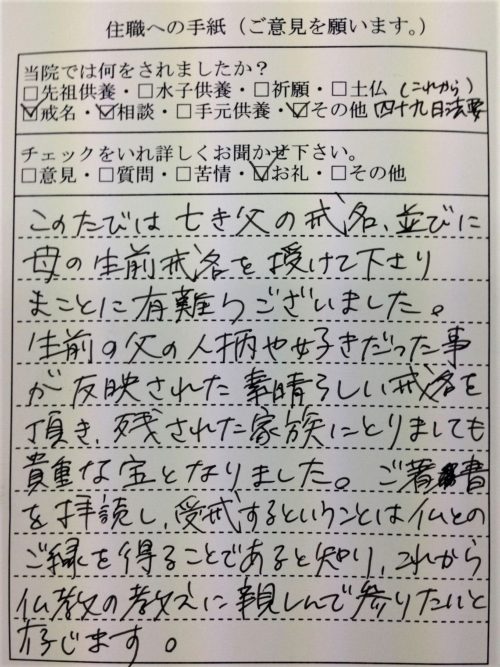 住職への手紙(ご意見を願います。)
当院では何をされましたか?
□先祖供養・□水子供養・□祈願・□土仏(これから)
☑戒名・☑相談・□手元供養・☑その他 四十九日法要
チェックをいれ詳しくお聞かせ下さい。
□意見・□質問・□苦情・☑お礼・□その他
このたびは亡き父の戒名、並びに
母の生前戒名を授けて下さり
まことに有難うございました。
生前の父の人柄や好きだった事
が反映された素晴らしい戒名を
頂き、残された家族にとりましても
貴重な宝となりました。ご著書
を拝読し、受戒するということは仏との
ご縁を得ることであると知り、これから
仏教の教えに親しんで参りたいと
存じます。